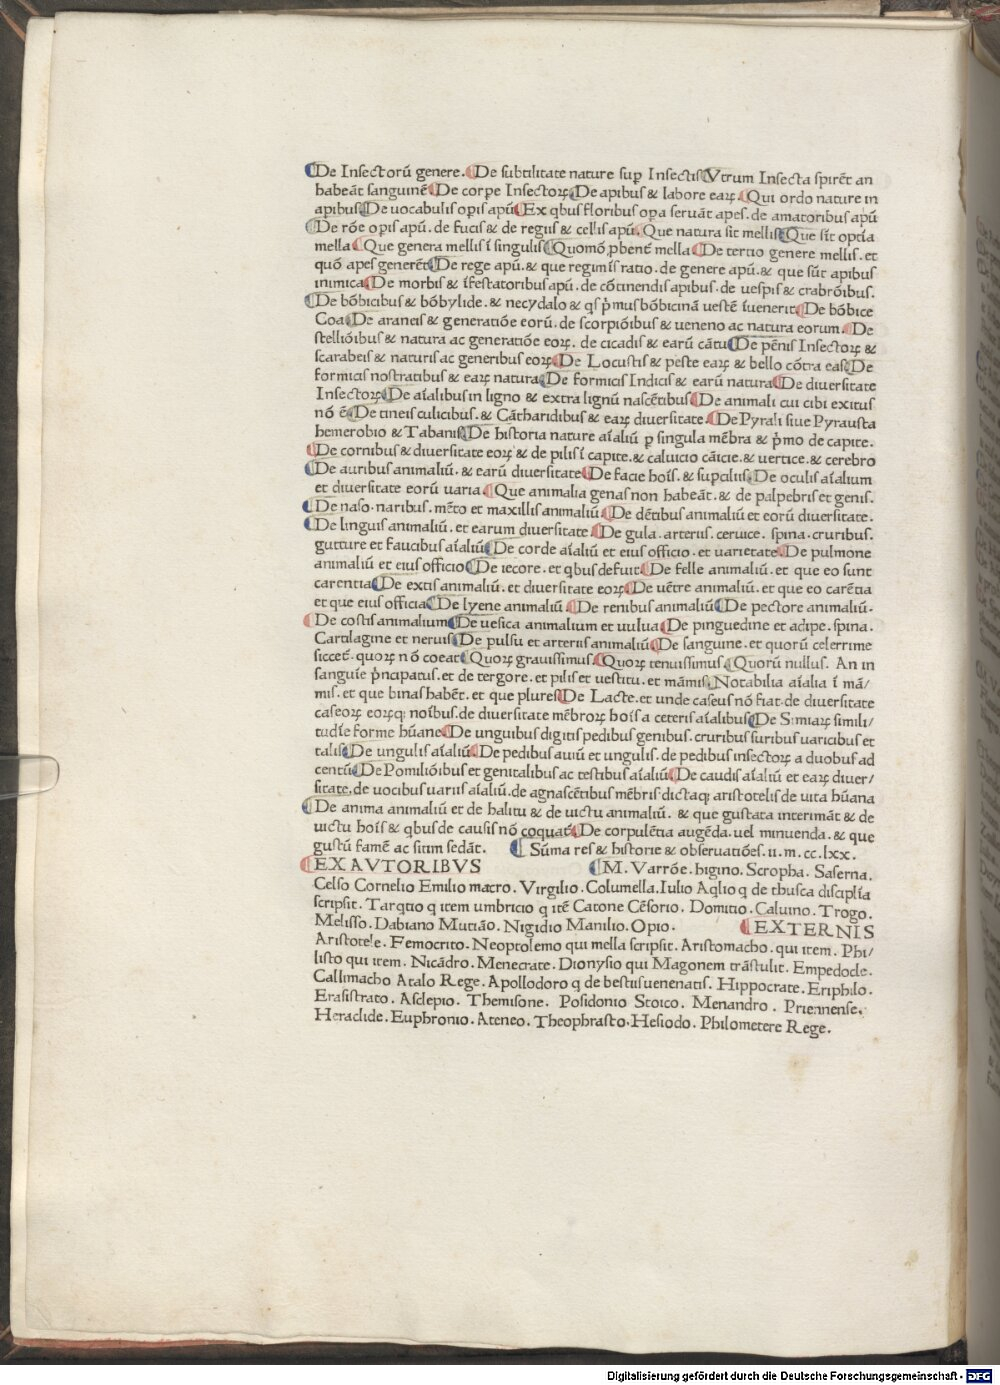 De Insectorū genere. De subtilitate nature sup̄ Insectis Vtrum Insecta spirēt an
habeāt sanguinē De corꝑe Insectoꝝ De apibus & labore eaꝝ. Qui ordo nature in
apibus De uocabulis oꝑis apū Ex qbus floribus oꝑa seruāt apes. de amatoribus apū
De rōe oꝑis apū. de fucis & de regiis & cellis apū. Que natura sit mellis Que sīt optīa
mella Que genera mellis ī singulis Quomō ꝓbent mella De tertio genere mellis. et
quō apes generēt De rege apū. & que regimīs ratio. de genere apū. & que sūt apibus
inimica De morbis & īfestatoribus apū. de cōtinendis apibus. de uespis & crabrōibus.
De bōbicibus & bōbylide. & necydalo & qs p̄mus bōbicinā uestē īuenerit De bōbice
Coa De araneis & generatiōe eorū. de scorpiōibus & ueneno ac natura eorum. De
stelliōibus & natura ac generatiōe eoꝝ. de cicadis & earū cātu De pēnis Insectoꝝ &
scarabeis & naturis ac generibus eoꝝ De Locustis & peste eaꝝ & bello cōtra eas De
formicis nostratibus & eaꝝ natura De formicis Indicis & earū natura De diuersitate
Insectoꝝ De aīalibus in ligno & extra lignū nascētibus De animali cui cibi exitus
nō ē De tineis culicibus. & Cātharidibus & eaꝝ diuersitate. De Pyrali siue Pyrausta
hemerobio & Tabanis De historia nature aīaliū ꝑ singula mēbra & p̄mo de capite.
De cornibus & diuersitate eoꝝ & de pilis ī capite. & caluicio cāicie. & uertice. & cerebro
De auribus animaliū. & earū diuersitate De facie hoīs. & supciliis De oculis aīalium
et diuersitate eorū uaria. Que animalia genas non habeāt. & de palpebris et genis.
De naso. naribus. mēto et maxillis animaliū De dētibus animaliū et eorū diuersitate.
De linguis animaliū. et earum diuersitate. De gula. arteriis. ceruice. spina. cruribus.
gutture et faucibus aīaliū De corde aīaliū et eius officio. et uarietate De pulmone
animaliū et eius officio De iecore. et qbus defuit De felle animaliū. et que eo sunt
carentia De extis animaliū. et diuersitate eoꝝ De uētre animaliū. et que eo carētia
et que eius officia De lyene animaliū. De renibus animaliū De pectore animaliū.
De costis animalium De uesica animalium et uulua De pinguedine et adipe. spina.
Cartilagine et neruis De pulsu et arteriis animaliū De sanguine. et quorū celerrime
siccet. quoꝝ nō coeat Quoꝝ grauissimus. Quoꝝ tenuissimus Quorū nullus. An in
sanguīe p̄ncipatus. et de tergore. et pilis et uestitu. et māmis. Notabilia aīalia ī mā/
mis. et que binas habēt. et que plures De Lacte. et unde caseus nō fiat. de diuersitate
caseoꝝ eoꝝq; noībus. de diuersitate mēbroꝝ hoīs a ceteris aīalibus De Simiaꝝ simili/
tudīe forme hūane De unguibus digitis pedibus genibus. cruribus suribus uaricibus et
talis De ungulis aīaliū. De pedibus auiū et ungulis. de pedibus insectoꝝ a duobus ad
centū De Pomiliōibus et genitalibus ac testibus aīaliū De caudis aīaliū et eaꝝ diuer/
sitate. de uocibus uariis aīaliū. de agnascētibus mēbris dictaq; aristotelis de uita hūana
De anima animaliū et de halitu & de uictu animaliū. & que gustata interimāt & de
uictu hoīs & qbus de causis nō coquat De corpulētia augēda. uel minuenda. & que
gustū famē ac sitim sedāt. Sūma res & historie & obseruatiōes. ii. m. cc. lxx.
EX AVTORIBVS M. Varrōe. higino. Scropha. Saserna.
Celso Cornelio Emilio macro. Virgilio. Columella. Iulio Aqlio q de thusca disciplīa
scripsit. Tarqtio q item umbricio q itē Catone Cēsorio. Domitio. Caluino. Trogo.
Melisso. Dabiano Mutiāo. Nigidio Manilio. Opio. EXTERNIS
Aristotele. Femocrito. Neoptolemo qui mella scripsit. Aristomacho. qui item. Phi/
listo qui item. Nicādro. Menecrate. Dionysio qui Magonem trāstulit. Empedocle.
Callimacho Atalo Rege. Apollodoro q de bestiis uenenatis. Hippocrate. Eriphilo.
Erasistrato. Asclepio. Themisone. Posidonio Stoico. Menandro. Priennense.
Heraclide. Euphronio. Ateneo. Theophrasto. Hesiodo. Philometere Rege.
Digitalisierung gefördert durch die Deutsche Forschungsgemeinschaft - DFG